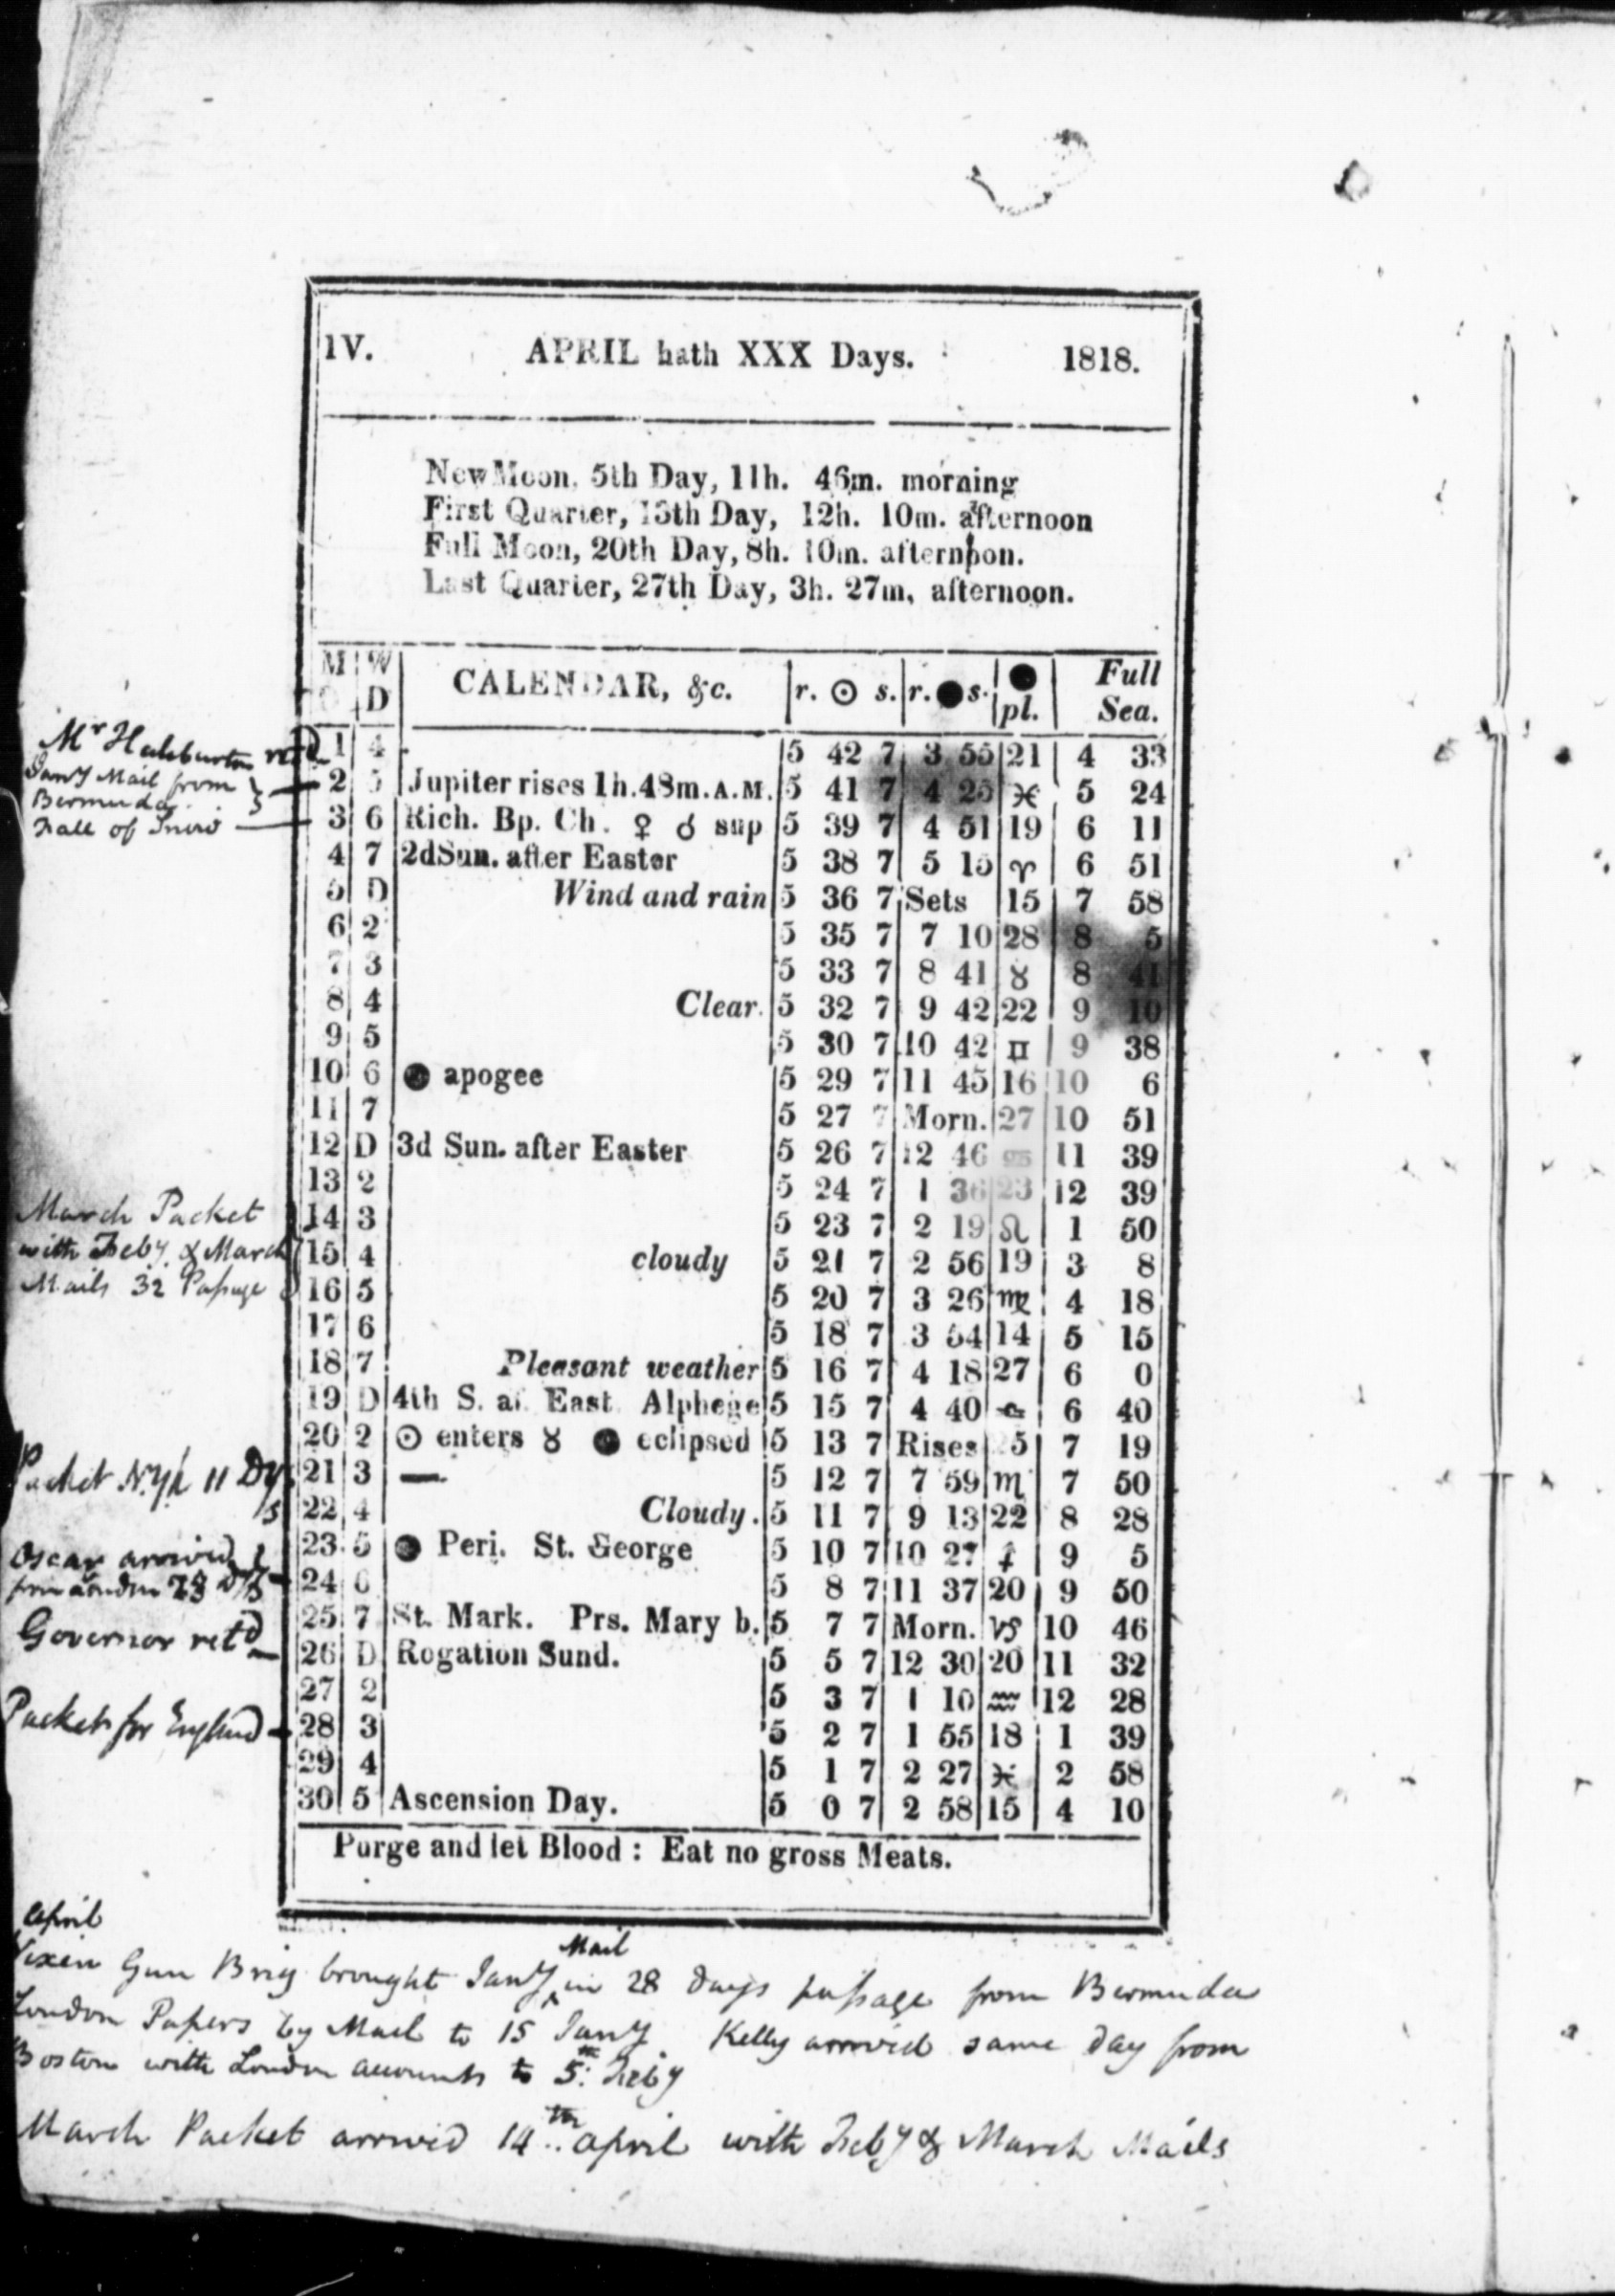 IV. APRIL hath XXX Days. 1818.
New Moon, 5th Day, 11h. 46m. morning
First Quarter, 13th Day, 12h. 10m. afternoon
Full Moon, 20th Day, 8h. 10m. afternoon.
Last Quarter, 27th Day, 3h. 27m, afternoon.
M D | W D | CALENDAR, &c. | r. ☉ s. | r. ● s. | ● pl. | Full Sea.
Mr Haliburton retd 1 4 5 42 7 3 55 21 4 33
Jany Mail from Bermuda 2 5 Jupiter rises 1h.48m.A.M. 5 41 7 4 25 ♓ 5 24
Fall of Snow 3 6 Rich. Bp. Ch. ♀ ☌ sup 5 39 7 4 51 19 6 11
4 7 2dSun. after Easter 5 38 7 5 15 ♈ 6 51
5 D Wind and rain 5 36 7 Sets 15 7 58
6 2 5 35 7 7 10 28 8 5
7 3 5 33 7 8 41 ♉ 8 41
8 4 Clear. 5 32 7 9 42 22 9 10
9 5 5 30 7 10 42 ♊ 9 38
10 6 ● apogee 5 29 7 11 45 16 10 6
11 7 5 27 7 Morn. 27 10 51
12 D 3d Sun. after Easter 5 26 7 12 46 ♋ 11 39
13 2 5 24 7 1 36 23 12 39
March Packet 14 3 5 23 7 2 19 ♌ 1 50
with Feby & March 15 4 cloudy 5 21 7 2 56 19 3 8
Mails 32 Passage 16 5 5 20 7 3 26 ♍ 4 18
17 6 5 18 7 3 54 14 5 15
18 7 Pleasant weather 5 16 7 4 18 27 6 0
19 D 4th S. af. East. Alphege 5 15 7 4 40 ♎ 6 40
20 2 ☉ enters ♉ ● eclipsed 5 13 7 Rises 25 7 19
Packet N.Yk 11 Dys 21 3 — 5 12 7 7 59 ♏ 7 50
22 4 Cloudy. 5 11 7 9 13 22 8 28
Oscar arrived 23 5 ● Peri. St. George 5 10 7 10 27 ♐ 9 5
from London 24 6 5 8 7 11 37 20 9 50
Governor retd 25 7 St. Mark. Prs. Mary b. 5 7 7 Morn. ♑ 10 46
26 D Rogation Sund. 5 5 7 12 30 20 11 32
27 2 5 3 7 1 10 ♒ 12 28
Packet for England 28 3 5 2 7 1 55 18 1 39
29 4 5 1 7 2 27 ♓ 2 58
30 5 Ascension Day. 5 0 7 2 58 15 4 10
Purge and let Blood : Eat no gross Meats.
April
Vixen Gun Brig brought Jany Mail in 28 days passage from Bermuda
London Papers by Mail to 15 Jany. Kelly arrived same day from
Boston with London accounts to 5th Feby
March Packet arrived 14th April with Feby & March Mails